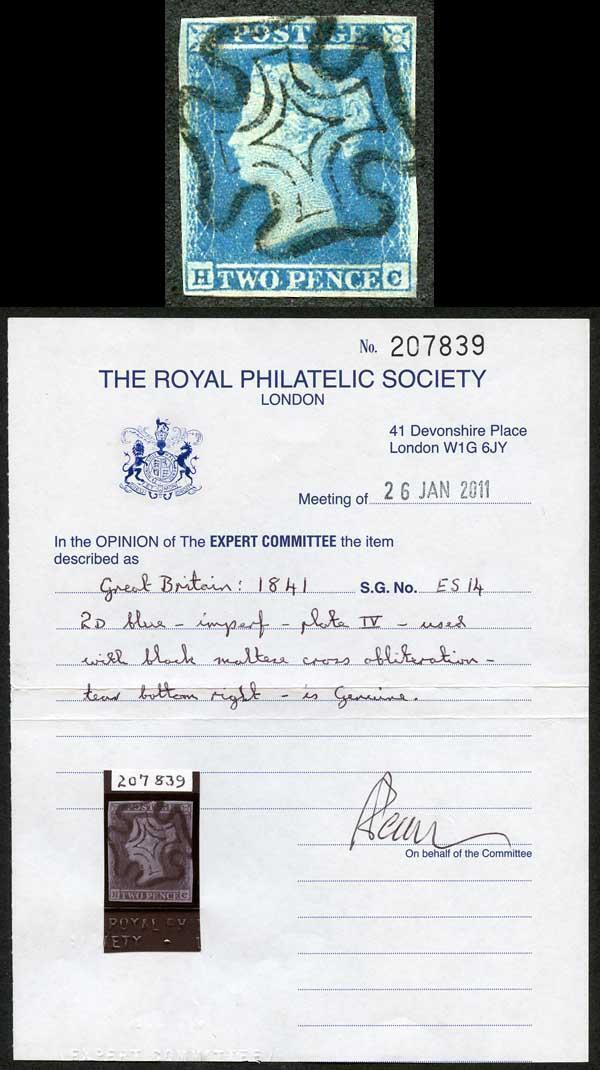 POSTAGE
H TWO PENCE C
No. 207839
THE ROYAL PHILATELIC SOCIETY
LONDON
41 Devonshire Place
London W1G 6JY
Meeting of 26 JAN 2011
In the OPINION of The EXPERT COMMITTEE the item
described as
Great Britain: 1841 S.G. No. ES14
2D blue - imperf - plate IV - used
with black maltese cross obliteration -
tear bottom right - is Genuine.
207839
POSTAGE
H TWO PENCE C
ROYAL
On behalf of the Committee
EXPERT COMMITTEE